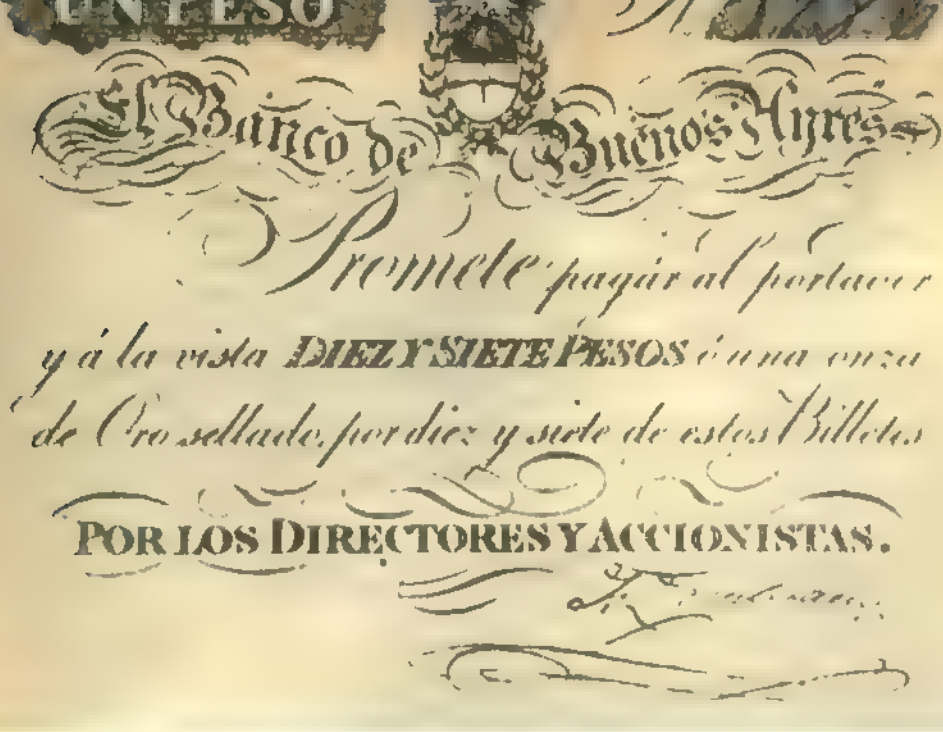 UN PESO
El Banco de Buenos Ayres
Promete pagár al portador
y á la vista DIEZ Y SIETE PESOS ó una onza
de Oro sellado, por diez y siete de estos Billetes
POR LOS DIRECTORES Y ACCIONISTAS.